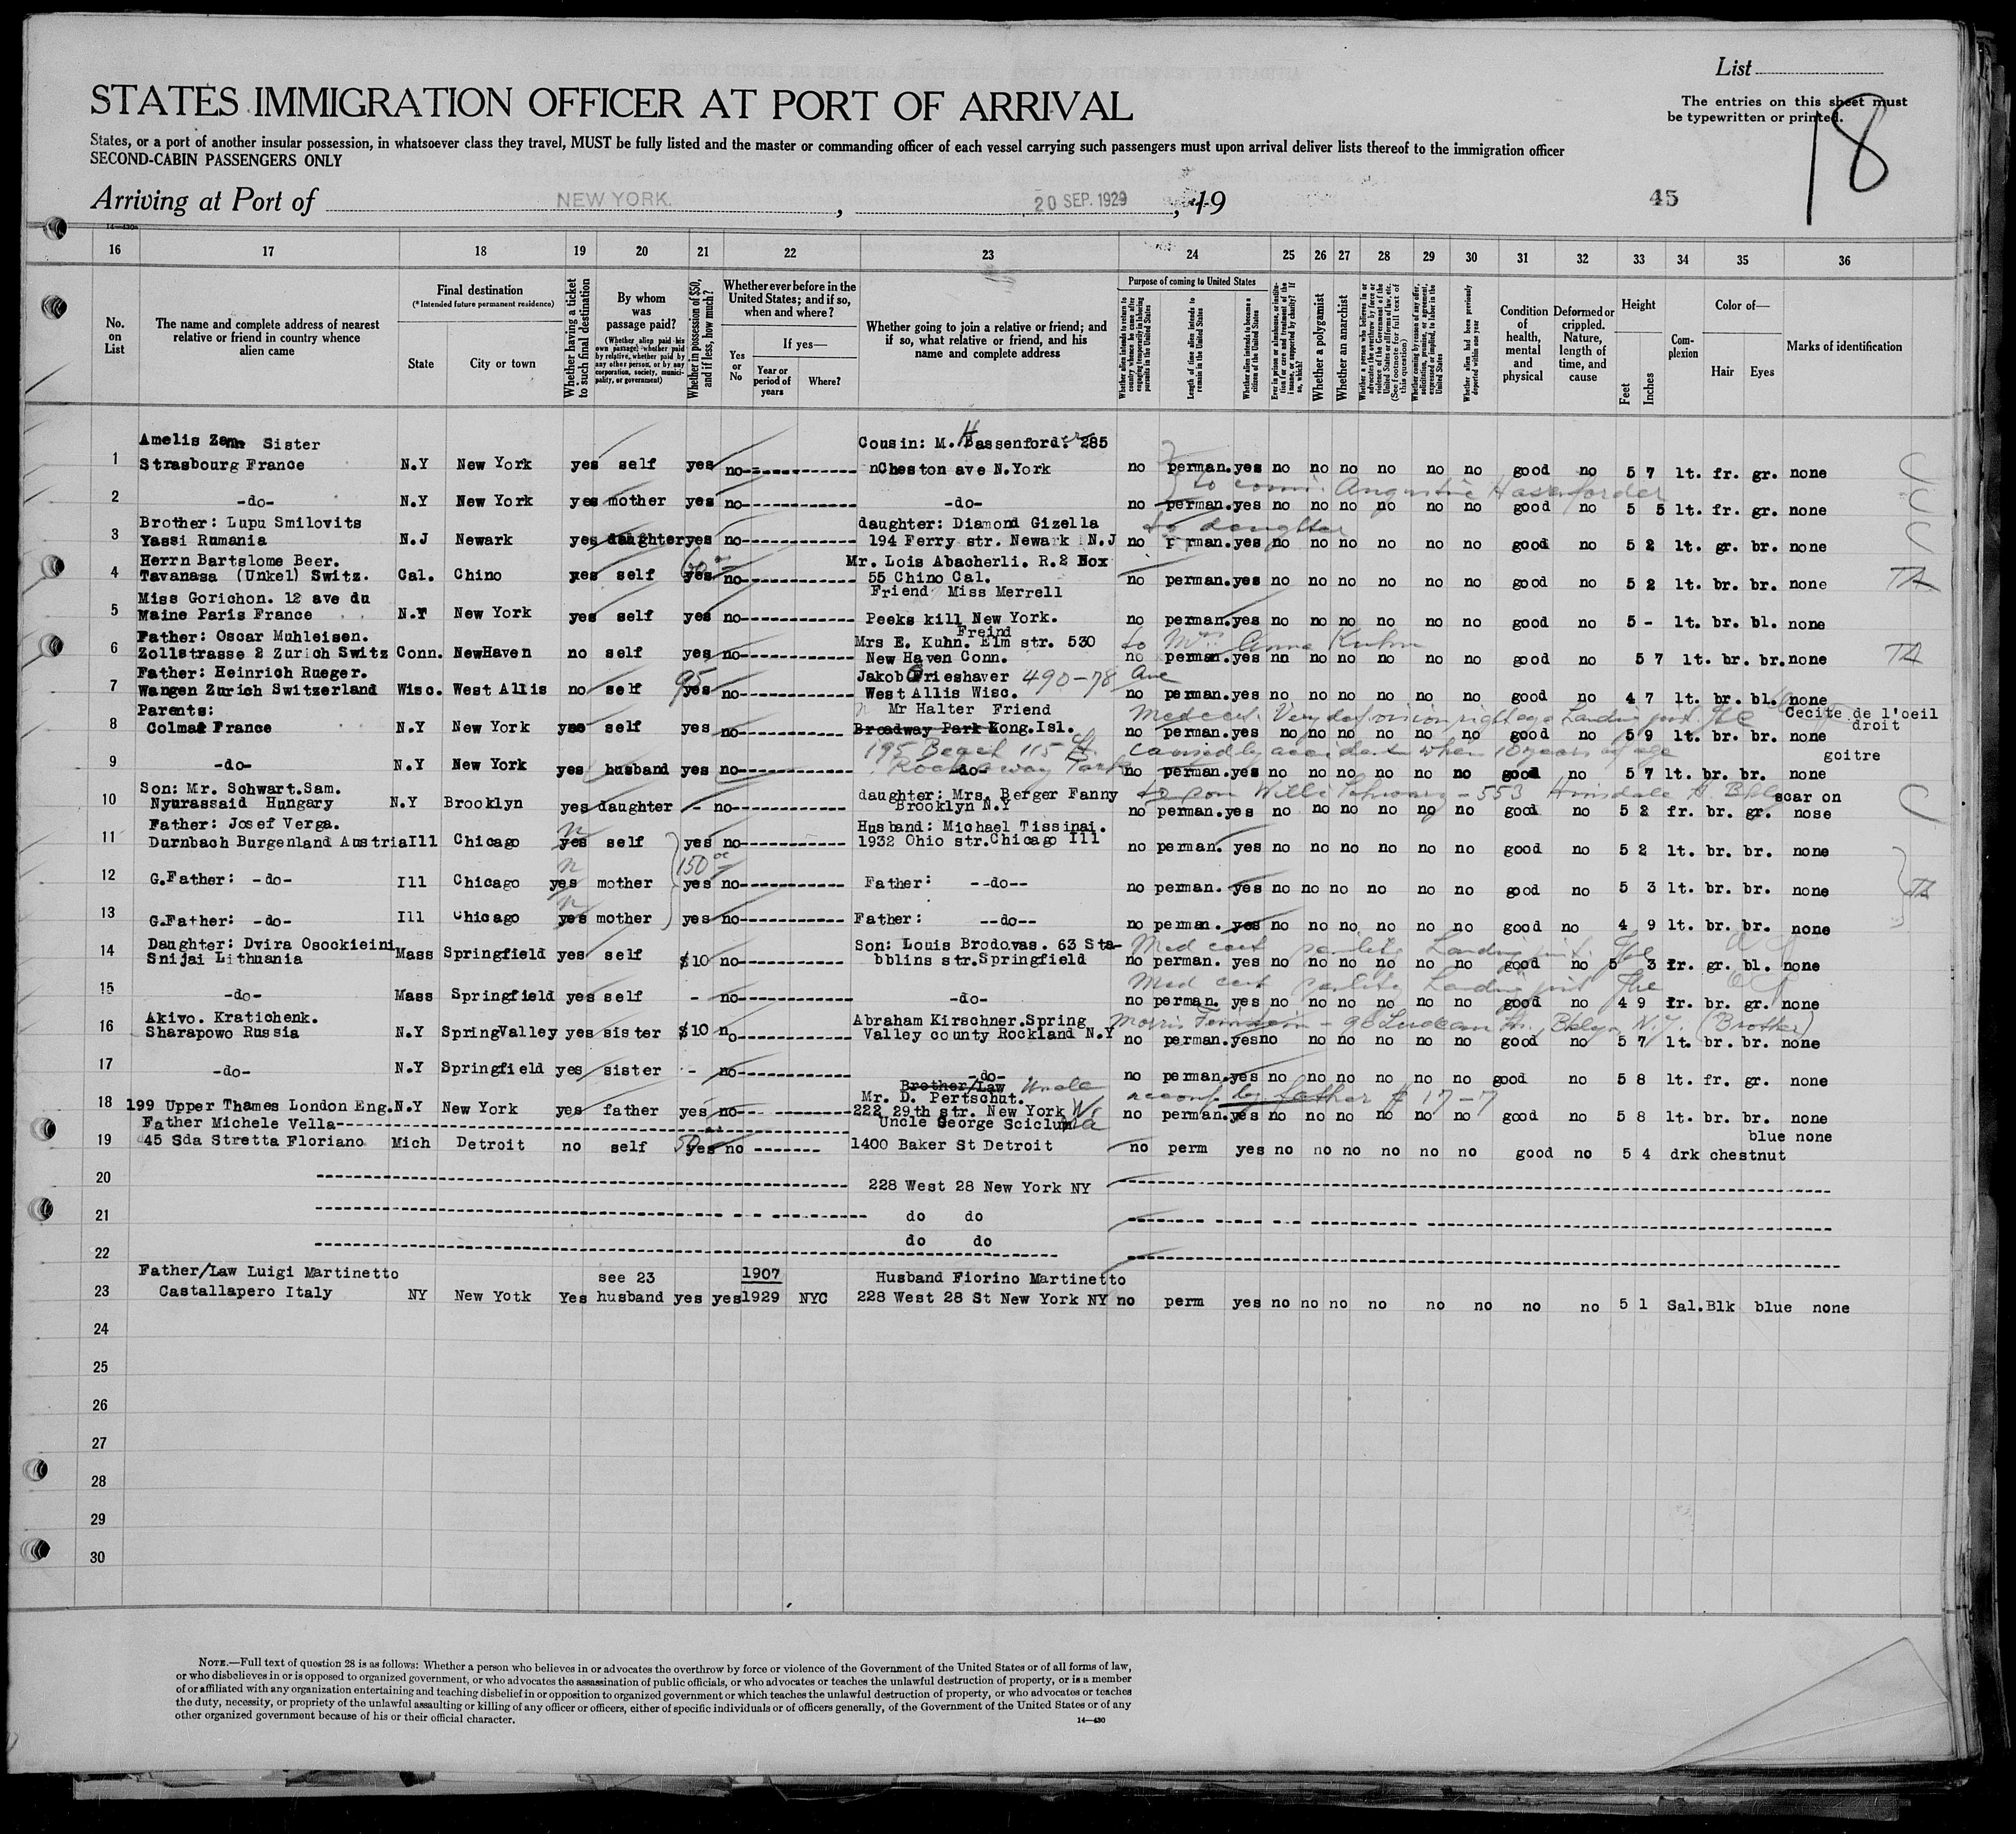 List
The entries on this sheet must
be typewritten or printed.
18
STATES IMMIGRATION OFFICER AT PORT OF ARRIVAL
States, or a port of another insular possession, in whatsoever class they travel, MUST be fully listed and the master or commanding officer of each vessel carrying such passengers must upon arrival deliver lists thereof to the immigration officer
SECOND-CABIN PASSENGERS ONLY
Arriving at Port of NEW YORK. , 20 SEP. 1929 , 19 45
14—430a
16 17 18 19 20 21 22 23 24 25 26 27 28 29 30 31 32 33 34 35 36
No. on List
The name and complete address of nearest relative or friend in country whence alien came
Final destination
(*Intended future permanent residence)
State
City or town
Whether having a ticket to such final destination
By whom was passage paid?
(Whether alien paid his own passage, whether paid by relative, whether paid by any other person, or by any corporation, society, municipality, or government)
Whether in possession of $50, and if less, how much?
Whether ever before in the United States; and if so, when and where?
Yes or No
If yes—
Year or period of years
Where?
Whether going to join a relative or friend; and if so, what relative or friend, and his name and complete address
Purpose of coming to United States
Whether alien intends to return to country whence he came after engaging temporarily in laboring pursuits in the United States
Length of time alien intends to remain in the United States
Whether alien intends to become a citizen of the United States
Ever in prison or almshouse, or institution for care and treatment of the insane, or supported by charity? If so, which?
Whether a polygamist
Whether an anarchist
Whether a person who believes in or advocates the overthrow by force or violence of the Government of the United States or all forms of law, etc. (See footnote for full text of this question)
Whether coming by reason of any offer, solicitation, promise, or agreement, expressed or implied, to labor in the United States
Whether alien had been previously deported within one year
Condition of health, mental and physical
Deformed or crippled. Nature, length of time, and cause
Height
Feet
Inches
Complexion
Color of—
Hair
Eyes
Marks of identification
Amelis Sister Cousin: M. Hassenford. 285
1 Strasbourg France N.Y New York yes self yes no------------ nCheston ave N.York no perman. yes no no no no no no good no 5 7 lt. fr. gr. none C
to cousi. Augustine Hasenforder
2 -do- N.Y New York yes mother yes no------------ -do- no perman. yes no no no no no no good no 5 5 lt. fr. gr. none C
Brother: Lupu Smilovits daughter: Diamond Gizella to daughter
3 Yassi Rumania N.J Newark yes daughter yes no------------ 194 Ferry str. Newark N.J no p rman. yes no no no no no no good no 5 2 lt. gr. br. none C
Herrn Bartslome Beer. 60 Mr. Lois Abacherli. R.2 Box
4 Tavanasa (Unkel) Switz. Cal. Chino yes self yes no------------ 55 Chino Cal. no perman. yes no no no no no no good no 5 2 lt. br. br. none
Miss Gorichon. 12 ave du Friend Miss Merrell
5 Maine Paris France N.Y New York yes self yes no------------ Peeks kill New York. no perman. yes no no no no no no good no 5 - lt. br. bl. none
Father: Oscar Muhleisen. Freind
6 Zollstrasse 2 Zurich Switz Conn. NewHaven no self yes no------------ Mrs E. Kuhn. Elm str. 530 to Mrs Anna Kuhn
New Haven Conn. no perman. yes no no no no no no good no 5 7 lt. br. br. none
Father: Heinrich Rueger. 95 Jakob Grieshaver 490-78 Ave
7 Wangen Zurich Switzerland Wisc. West Allis no self yes no------------ West Allis Wisc. no perman. yes no no no no no no good no 4 7 lt. br. bl. none
Parents: Mr Halter Friend Med cert. Very def. vision right eye Cecite de l'oeil
8 Colmar France N.Y New York yes self yes no------------ Broadway Park Kong.Isl. no perman. yes no no no no no no good no 5 9 lt. br. br. none droit
195 Beach 115 St. caused by accident when 10 years of age goitre
Rockaway Park
9 -do- N.Y New York yes husband yes no------------ -do- no perman. yes no no no no no no good no 5 7 lt. br. br. none
Son: Mr. Schwart.Sam. daughter: Mrs. Berger Fanny 553 Hinsdale scar on
10 Nyurassaid Hungary N.Y Brooklyn yes daughter - no------------ Brooklyn N.Y no perman. yes no no no no no no good no 5 2 fr. br. gr. nose C
Father: Josef Verga. Husband: Michael Tissinai.
11 Durnbach Burgenland Austria Ill Chicago yes self yes no------------ 1932 Ohio str.Chicago Ill no perman. yes no no no no no no good no 5 2 lt. br. br. none
150
12 G.Father: -do- Ill Chicago yes mother yes no------------ Father: --do-- no perman. yes no no no no no no good no 5 3 lt. br. br. none
13 G.Father: -do- Ill Chicago yes mother yes no------------ Father: --do-- no perman. yes no no no no no no good no 4 9 lt. br. br. none
Daughter: Dvira Osockieini Son: Louis Brodovas. 63 Sta- Med cert
14 Snijai Lithuania Mass Springfield yes self $10 no------------ bblins str.Springfield no perman. yes no no no no no no good no 5 3 fr. gr. bl. none
Med cert
15 -do- Mass Springfield yes self - no------------ -do- no perman. yes no no no no no no good no 4 9 fr. br. gr. none
Akivo. Kratichenk. Abraham Kirschner.Spring Morris Bklyn, N.Y. (Brother)
16 Sharapowo Russia N.Y SpringValley yes sister $10 no------------ Valley county Rockland N.Y no perman. yes no no no no no no good no 5 7 lt. br. br. none
17 -do- N.Y Springfield yes sister - no------------ -do- no perman. yes no no no no no no good no 5 8 lt. fr. gr. none
Brother/Law Uncle
Mr. D. Pertschut. accomp. by father # 17-7
18 199 Upper Thames London Eng. N.Y New York yes father yes no------------ 222 29th str. New York W. no perman. yes no no no no no no good no 5 8 lt. br. br. none
Father Michele Vella------------ Uncle George Scicluna
blue none
19 45 Sda Stretta Floriano Mich Detroit no self 50 yes no ------- 1400 Baker St Detroit no perm yes no no no no no no good no 5 4 drk chestnut
20 ------------ 228 West 28 New York NY ------------
21 ------------ do do ------------
22 ------------ do do ------------
Father/Law Luigi Martinetto see 23 1907 Husband Fiorino Martinetto
23 Castallapero Italy NY New Yotk Yes husband yes yes 1929 NYC 228 West 28 St New York NY no perm yes no no no no no no no no 5 1 Sal. Blk blue none
24
25
26
27
28
29
30
NOTE.—Full text of question 28 is as follows: Whether a person who believes in or advocates the overthrow by force or violence of the Government of the United States or of all forms of law,
or who disbelieves in or is opposed to organized government, or who advocates the assassination of public officials, or who advocates or teaches the unlawful destruction of property, or is a member
of or affiliated with any organization entertaining and teaching disbelief in or opposition to organized government or which teaches the unlawful destruction of property, or who advocates or teaches
the duty, necessity, or propriety of the unlawful assaulting or killing of any officer or officers, either of specific individuals or of officers generally, of the Government of the United States or of any
other organized government because of his or their official character.
14—430